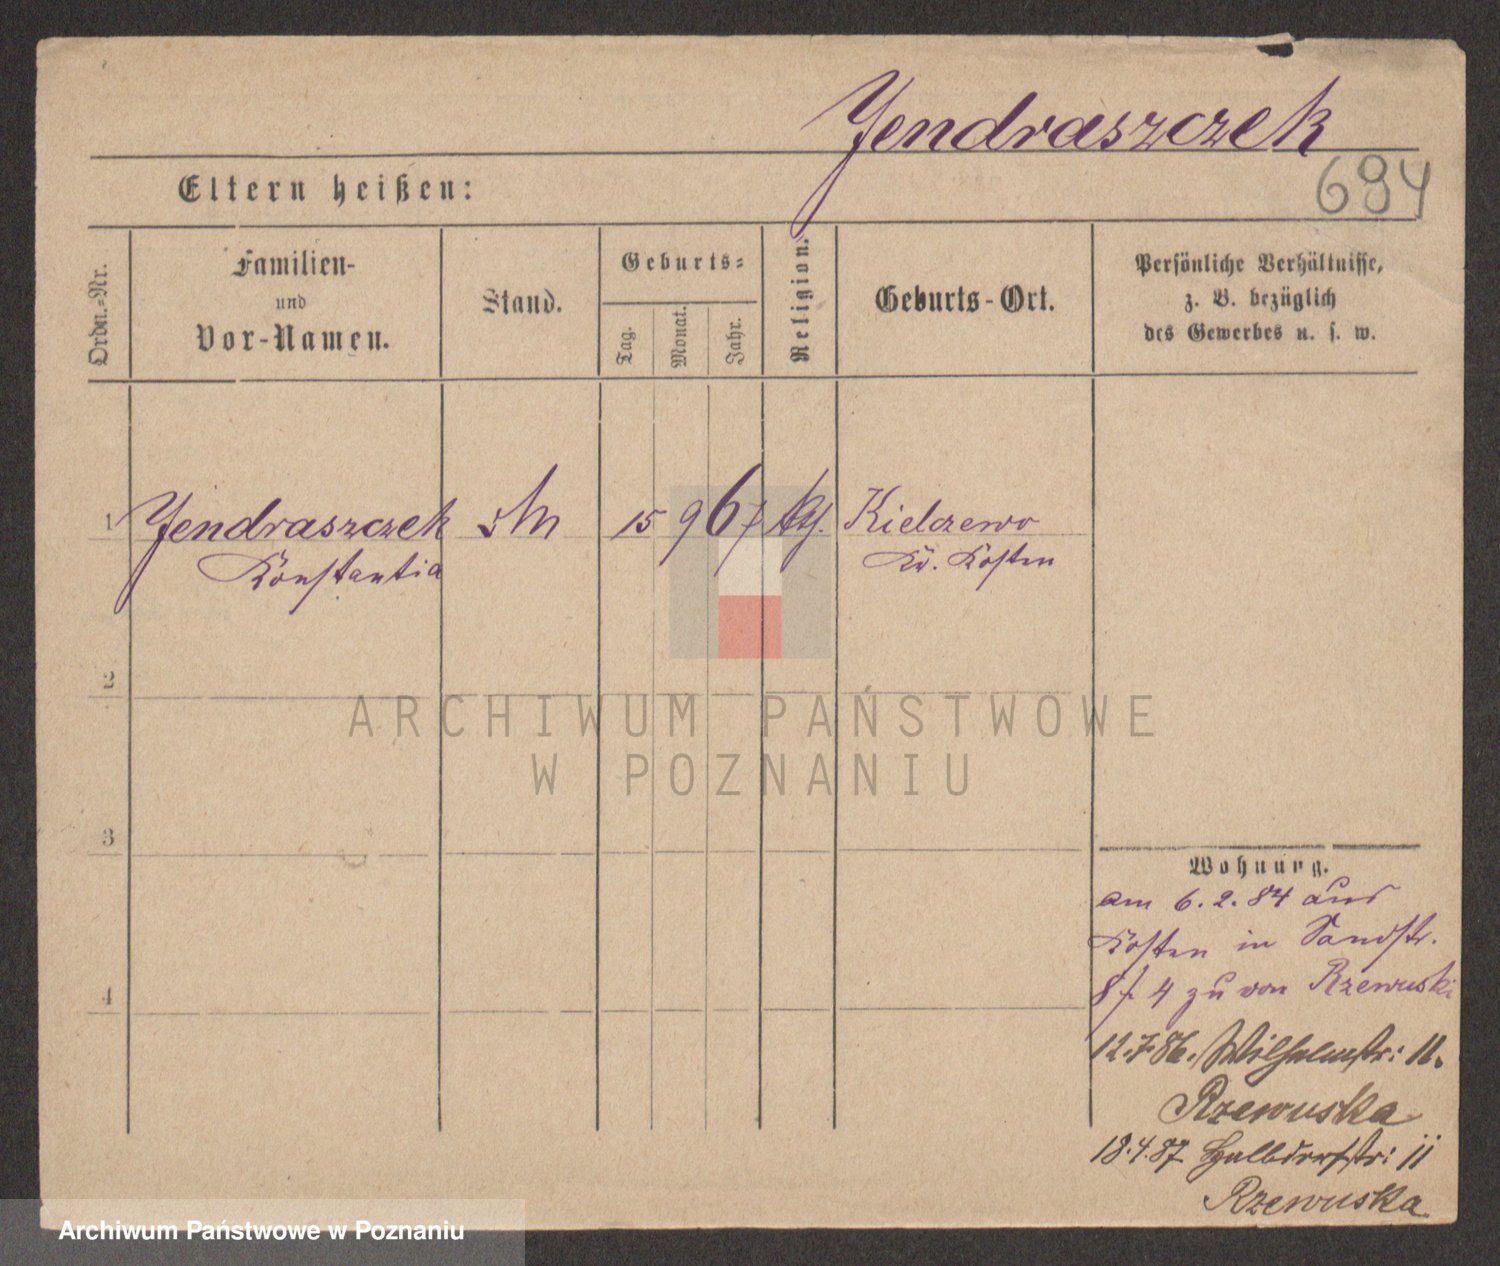 Jendraszczek
694
Eltern heißen:
Ordn.-Nr.
Familien-
und
Vor-Namen.
Stand.
Geburts-
Tag.
Monat.
Jahr.
Religion.
Geburts-Ort.
Persönliche Verhältnisse,
z. B. bezüglich
des Gewerbes u. s. w.
1 Jendraszczek 15 9 67 Kielczewo
Konstantia Kr. Kosten
2
3
4
Wohnung.
am 6.2.84 aus
Kosten in Sandstr.
8 4 zu von Rzewuski
12.7.86. Wilhelmstr: 11.
Rzewuska
18.4.87 Halbdorfstr: 11
Rzewuska
ARCHIWUM PAŃSTWOWE
W POZNANIU
Archiwum Państwowe w Poznaniu